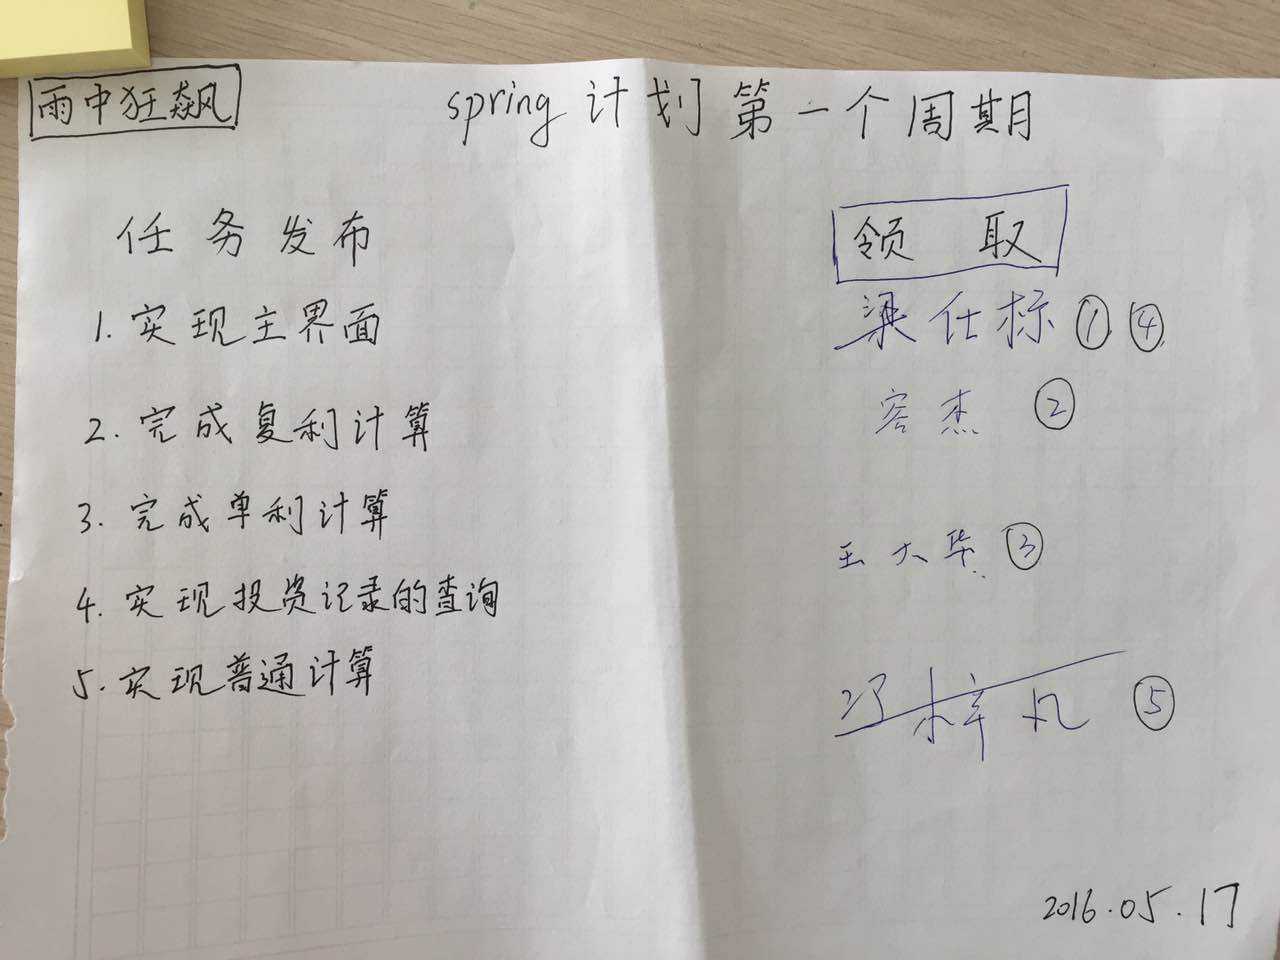 雨中狂飙
spring 计划第一个周期
任务发布
1. 实现主界面
2. 完成复利计算
3. 完成单利计算
4. 实现投资记录的查询
5. 实现普通计算
领 取
梁仕标 ① ④
容杰 ②
王大华 ③
冯梓凡 ⑤
2016.05.17